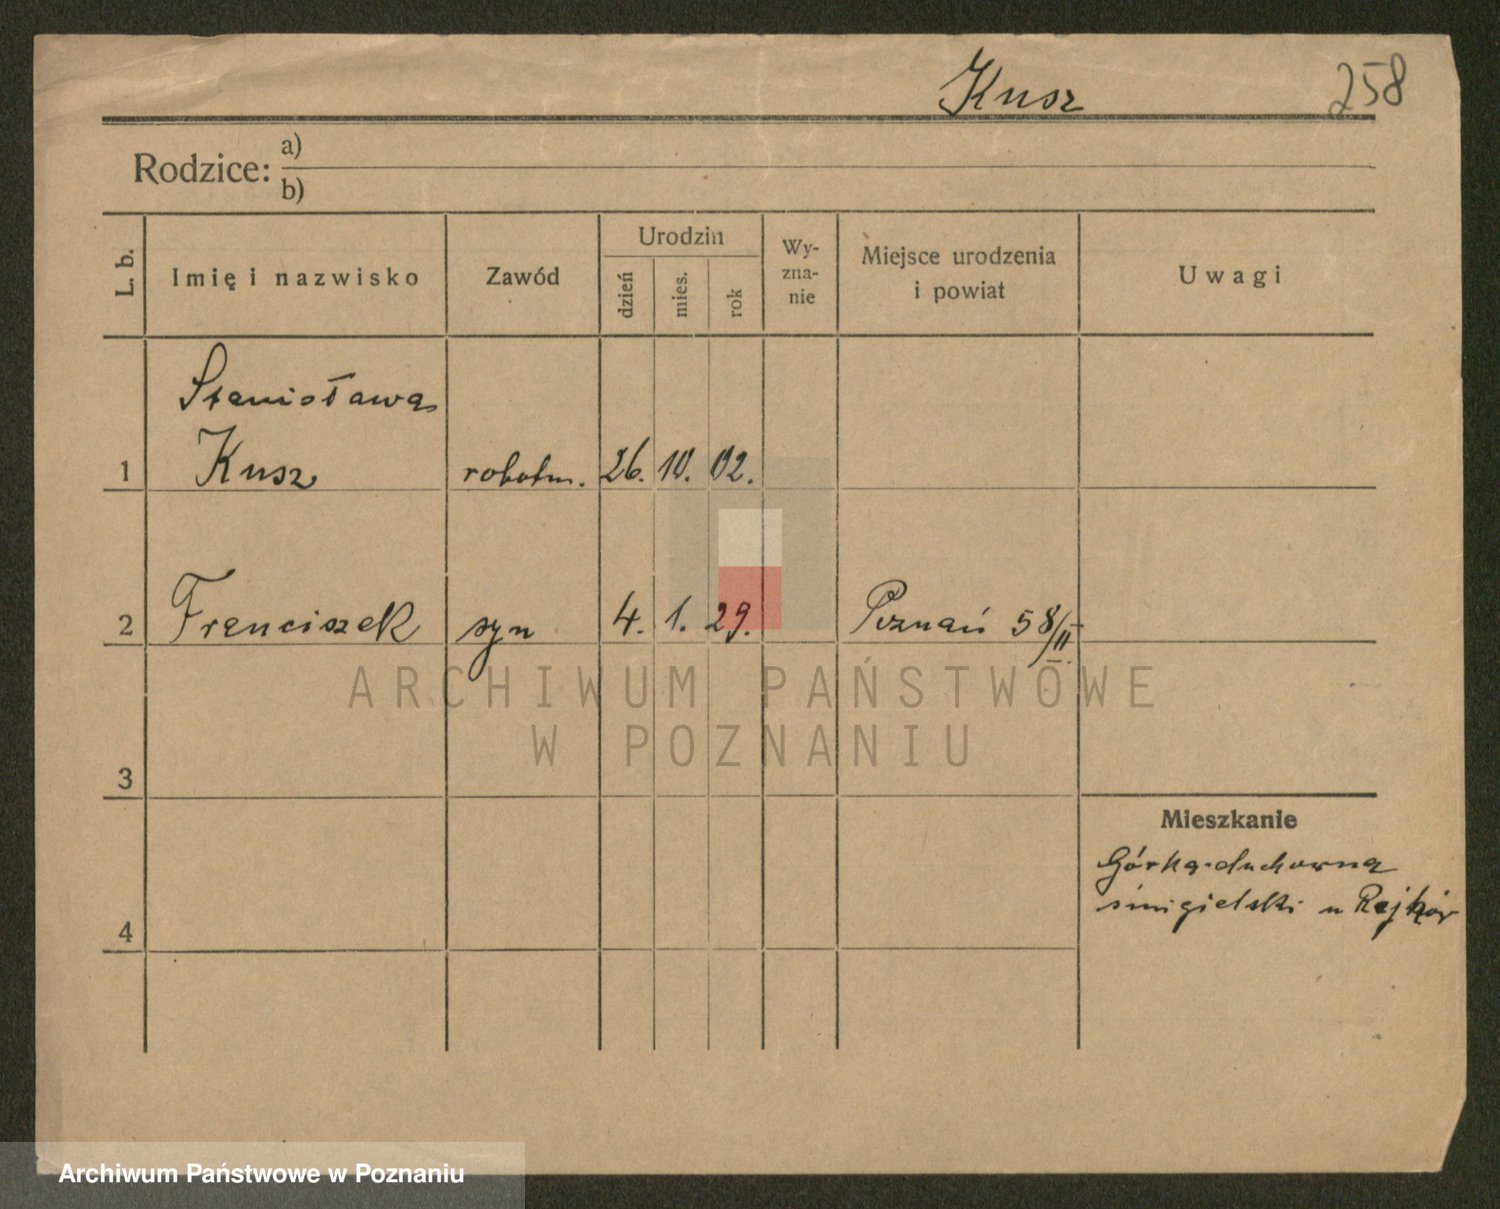 Kusz 258
Rodzice: a)
b)
L. b. Imię i nazwisko Zawód Urodzin dzień mies. rok Wy-zna-nie Miejsce urodzenia i powiat Uwagi
Stanisława
1 Kusz robotn. 26. 10. 02.
2 Franciszek syn 4. 1. 29. Poznań 58/II
ARCHIWUM PAŃSTWOWE
W POZNANIU
3
Mieszkanie
Górka-duchowna
śmigielski u
4
Archiwum Państwowe w Poznaniu